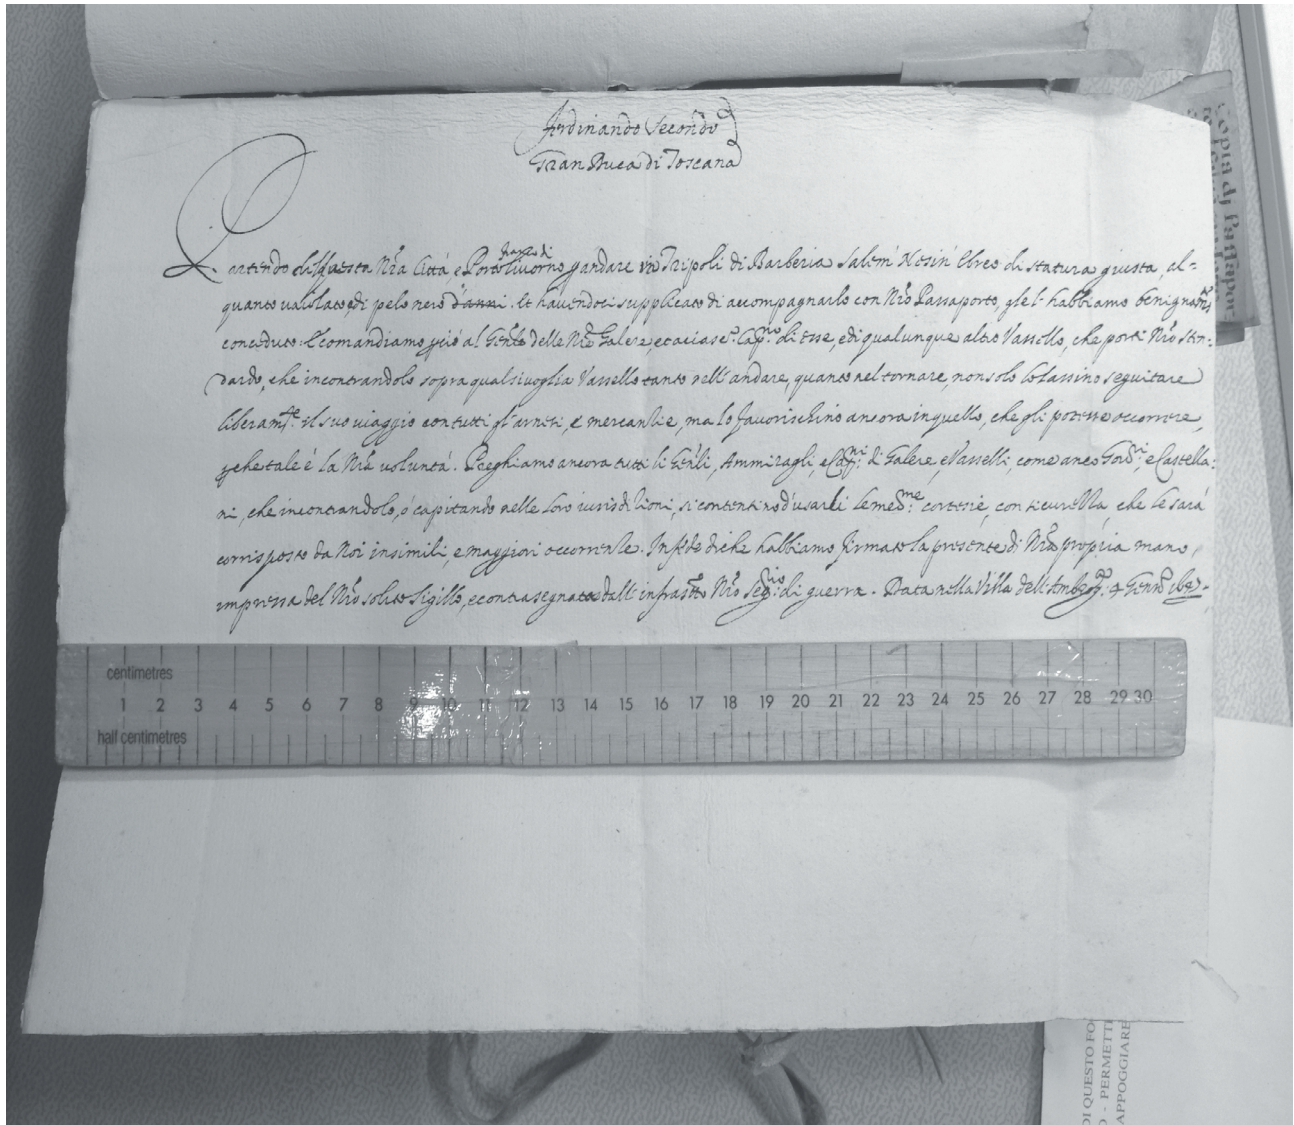 Ferdinando Secondo
Gran Duca di Toscana
Partendo di questa Nr̃a Città, e Porto franco di Livorno p andare in Tripoli di Barberia Salem Nesin Ebreo di statura giusta, al-
quanto vaiolato, di pelo nero d'anni. Et havendoci supplicato di accompagnarlo con Nr̃o Passaporto, gle l'habbiamo benignam.te
conceduto. E comandiamo p ciò al Gen̄le delle Nr̃e Galere, et a ciasc.o Cap.no di esse, e di qualunque altro Vassello, che porti Nr̃o sten-
dardo, che incontrandolo sopra qualsivoglia Vassello tanto nell'andare, quanto nel tornare, non solo lo lassino seguitare
liberam.te il suo viaggio con tutti gl'arnesi, e mercantie, ma lo favorischino ancora in quello, che gli potesse occorrere,
p che tale è la Nr̃a voluntà. Preghiamo ancora tutti li Gen̄li, Ammiragli, e Cap.ni di Galere, e Vasselli, come anco Gov.ri e Castella-
ni, che incontrandolo, ò capitando nelle loro iurisdizioni, si contentino d'usarli le med.me cortesie, con sicurezza, che le sarà
corrisposto da Noi in simili, e maggiori occorrenze. In fede di che habbiamo firmato la presente di Nr̃a propria mano
impressa del Nr̃o solito Sigillo, e contrasegnata dall'infras.tto Nr̃o Seg.rio di guerra. Data nella Villa dell'Ambrog.a 4 Genn.o
centimetres
1 2 3 4 5 6 7 8 9 10 11 12 13 14 15 16 17 18 19 20 21 22 23 24 25 26 27 28 29 30
half centimetres
Copia di Passapor
DI QUESTO FO
O - PERMETT
APPOGGIARE